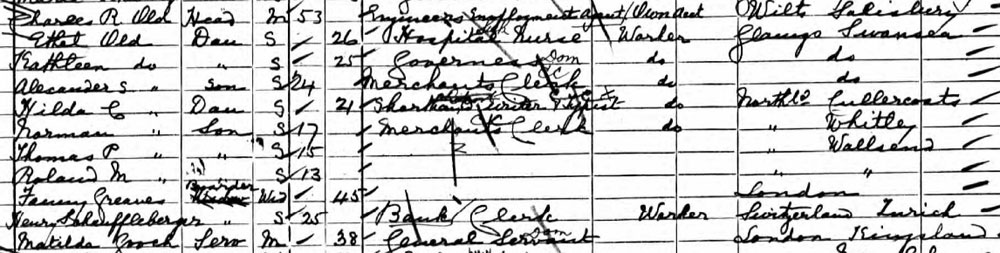 Charles R Old Head M 53 Engineers Employment Agent Own Acct Wilts Salisbury
Ethel Old Dau S 26 Hospital Nurse Worker Glamgs Swansea
Kathleen do " S 25 Governess Dom do do
Alexander S " Son S 24 Merchants Clerk do do
Hilda C " Dau S 21 Shorthand Writer Typist do Northld Cullercoats
Norman " Son S 17 Merchants Clerk do " Whitley
Thomas P " " S 15 " Wallsend
Roland M " S 13 " "
Fanny Greaves Boarder Wid 45 London
Henry Schauffleberger " S 25 Bank Clerk Worker Switzerland Zurich
Matilda Gooch Serv M 38 General Servant Dom London Kingsland